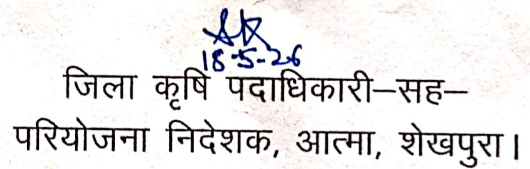 18-5-26
जिला कृषि पदाधिकारी–सह–
परियोजना निदेशक, आत्मा, शेखपुरा।